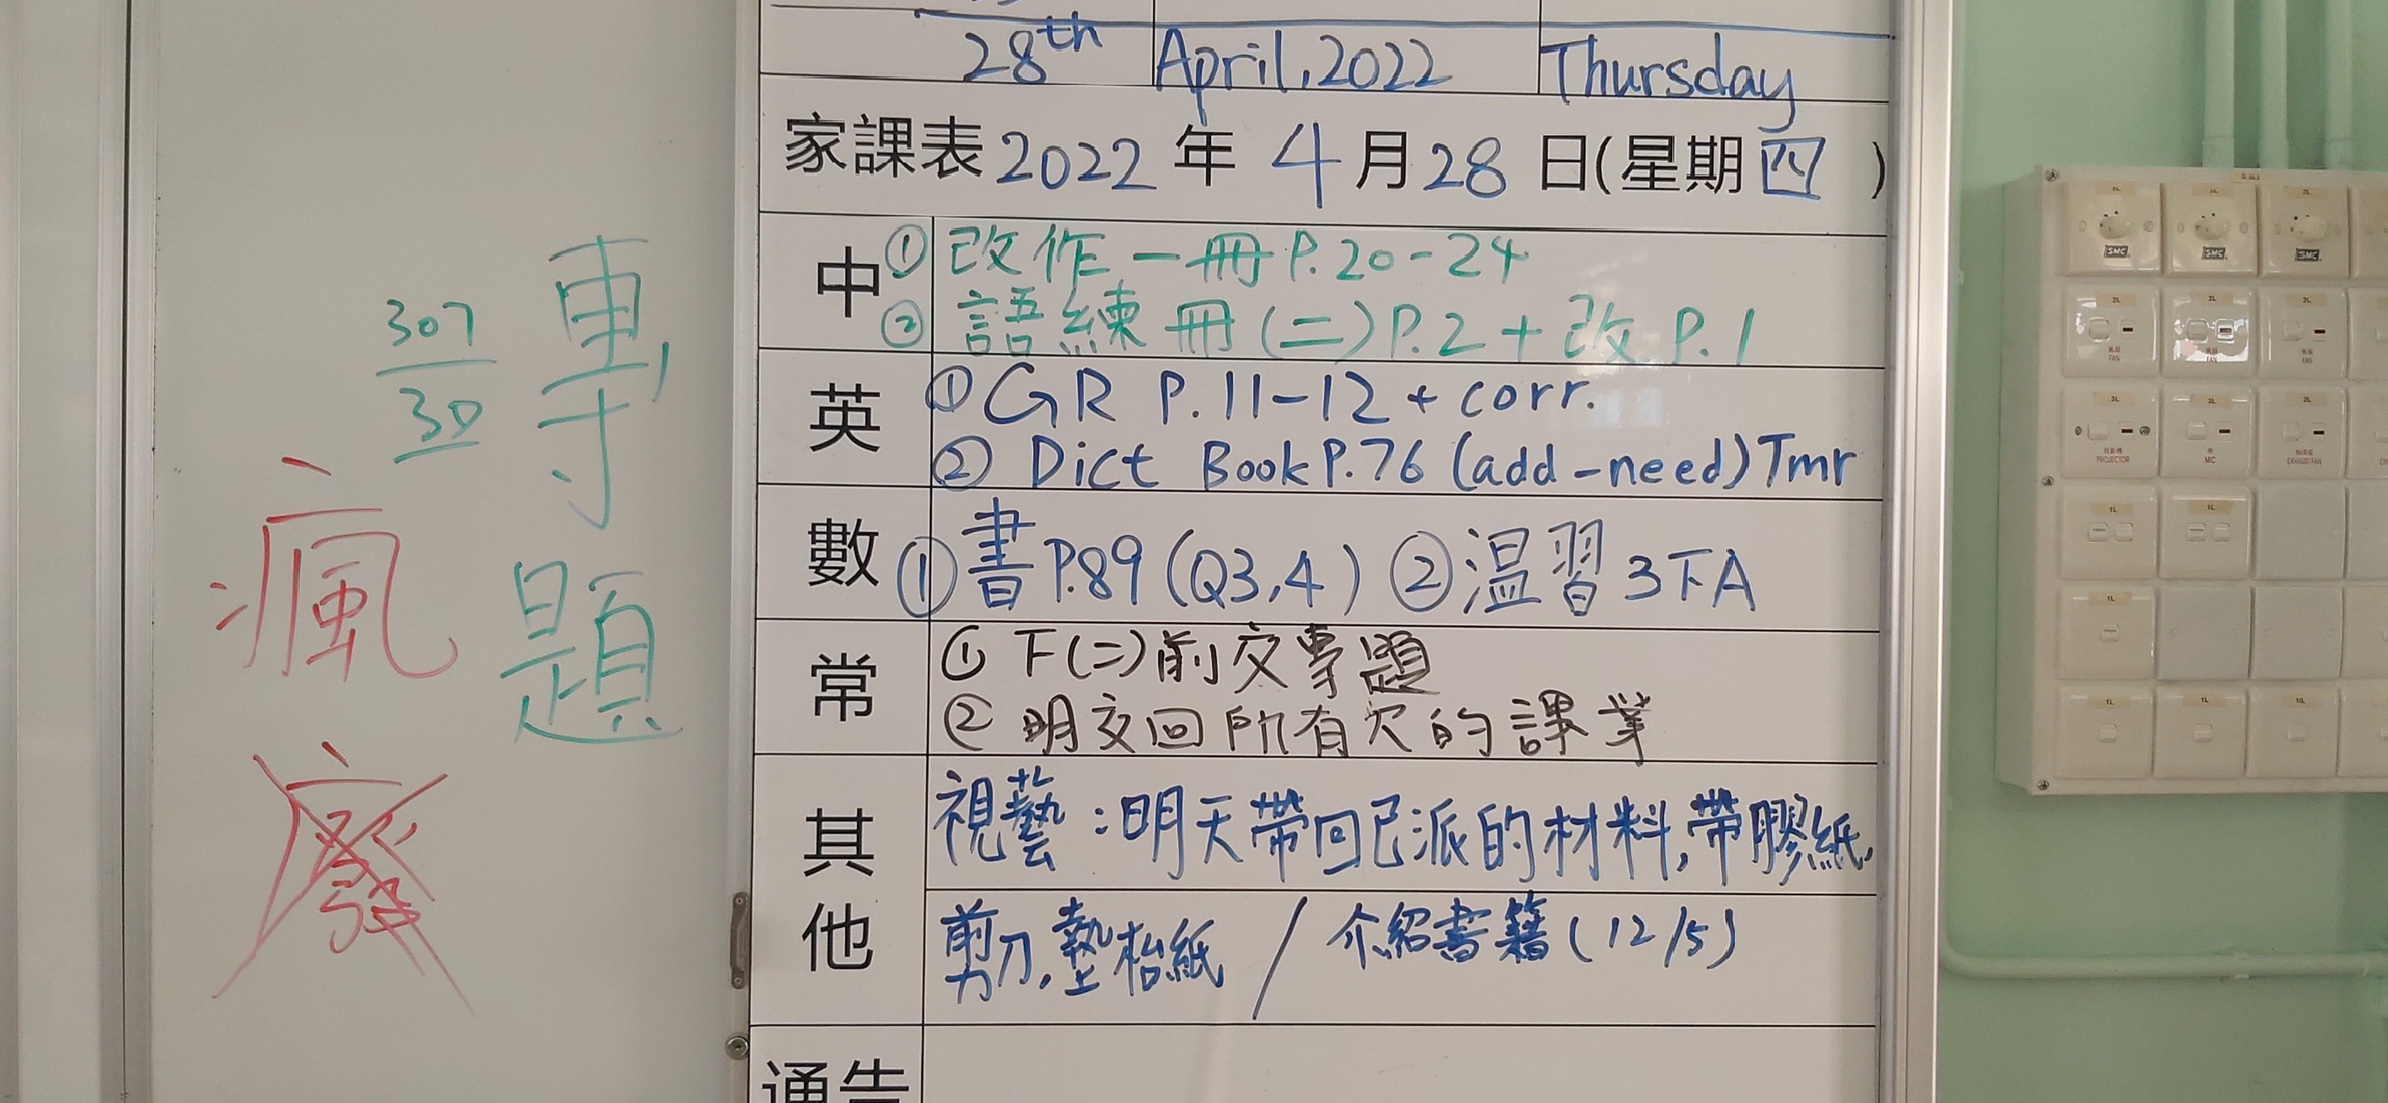 專題
307
30
瘋
28th April, 2022 Thursday
家課表2022年4月28日(星期四)
中 ① 改作一冊P.20-24
② 語練冊(二)P.2+改P.1
英 ① GR P.11-12 + corr.
② Dict Book P.76 (add-need) Tmr
數 ① 書P.89 (Q3,4) ② 温習3下A
常 ① 下(二)前交專題
② 明交回所有欠的課業
其他 視藝:明天帶回已派的材料,帶膠紙,
剪刀,墊枱紙 / 介紹書籍(12/5)
通告
SMC
SMC
SMC
FAN
FAN
FAN
PROJECTOR
MIC
EXHAUST FAN